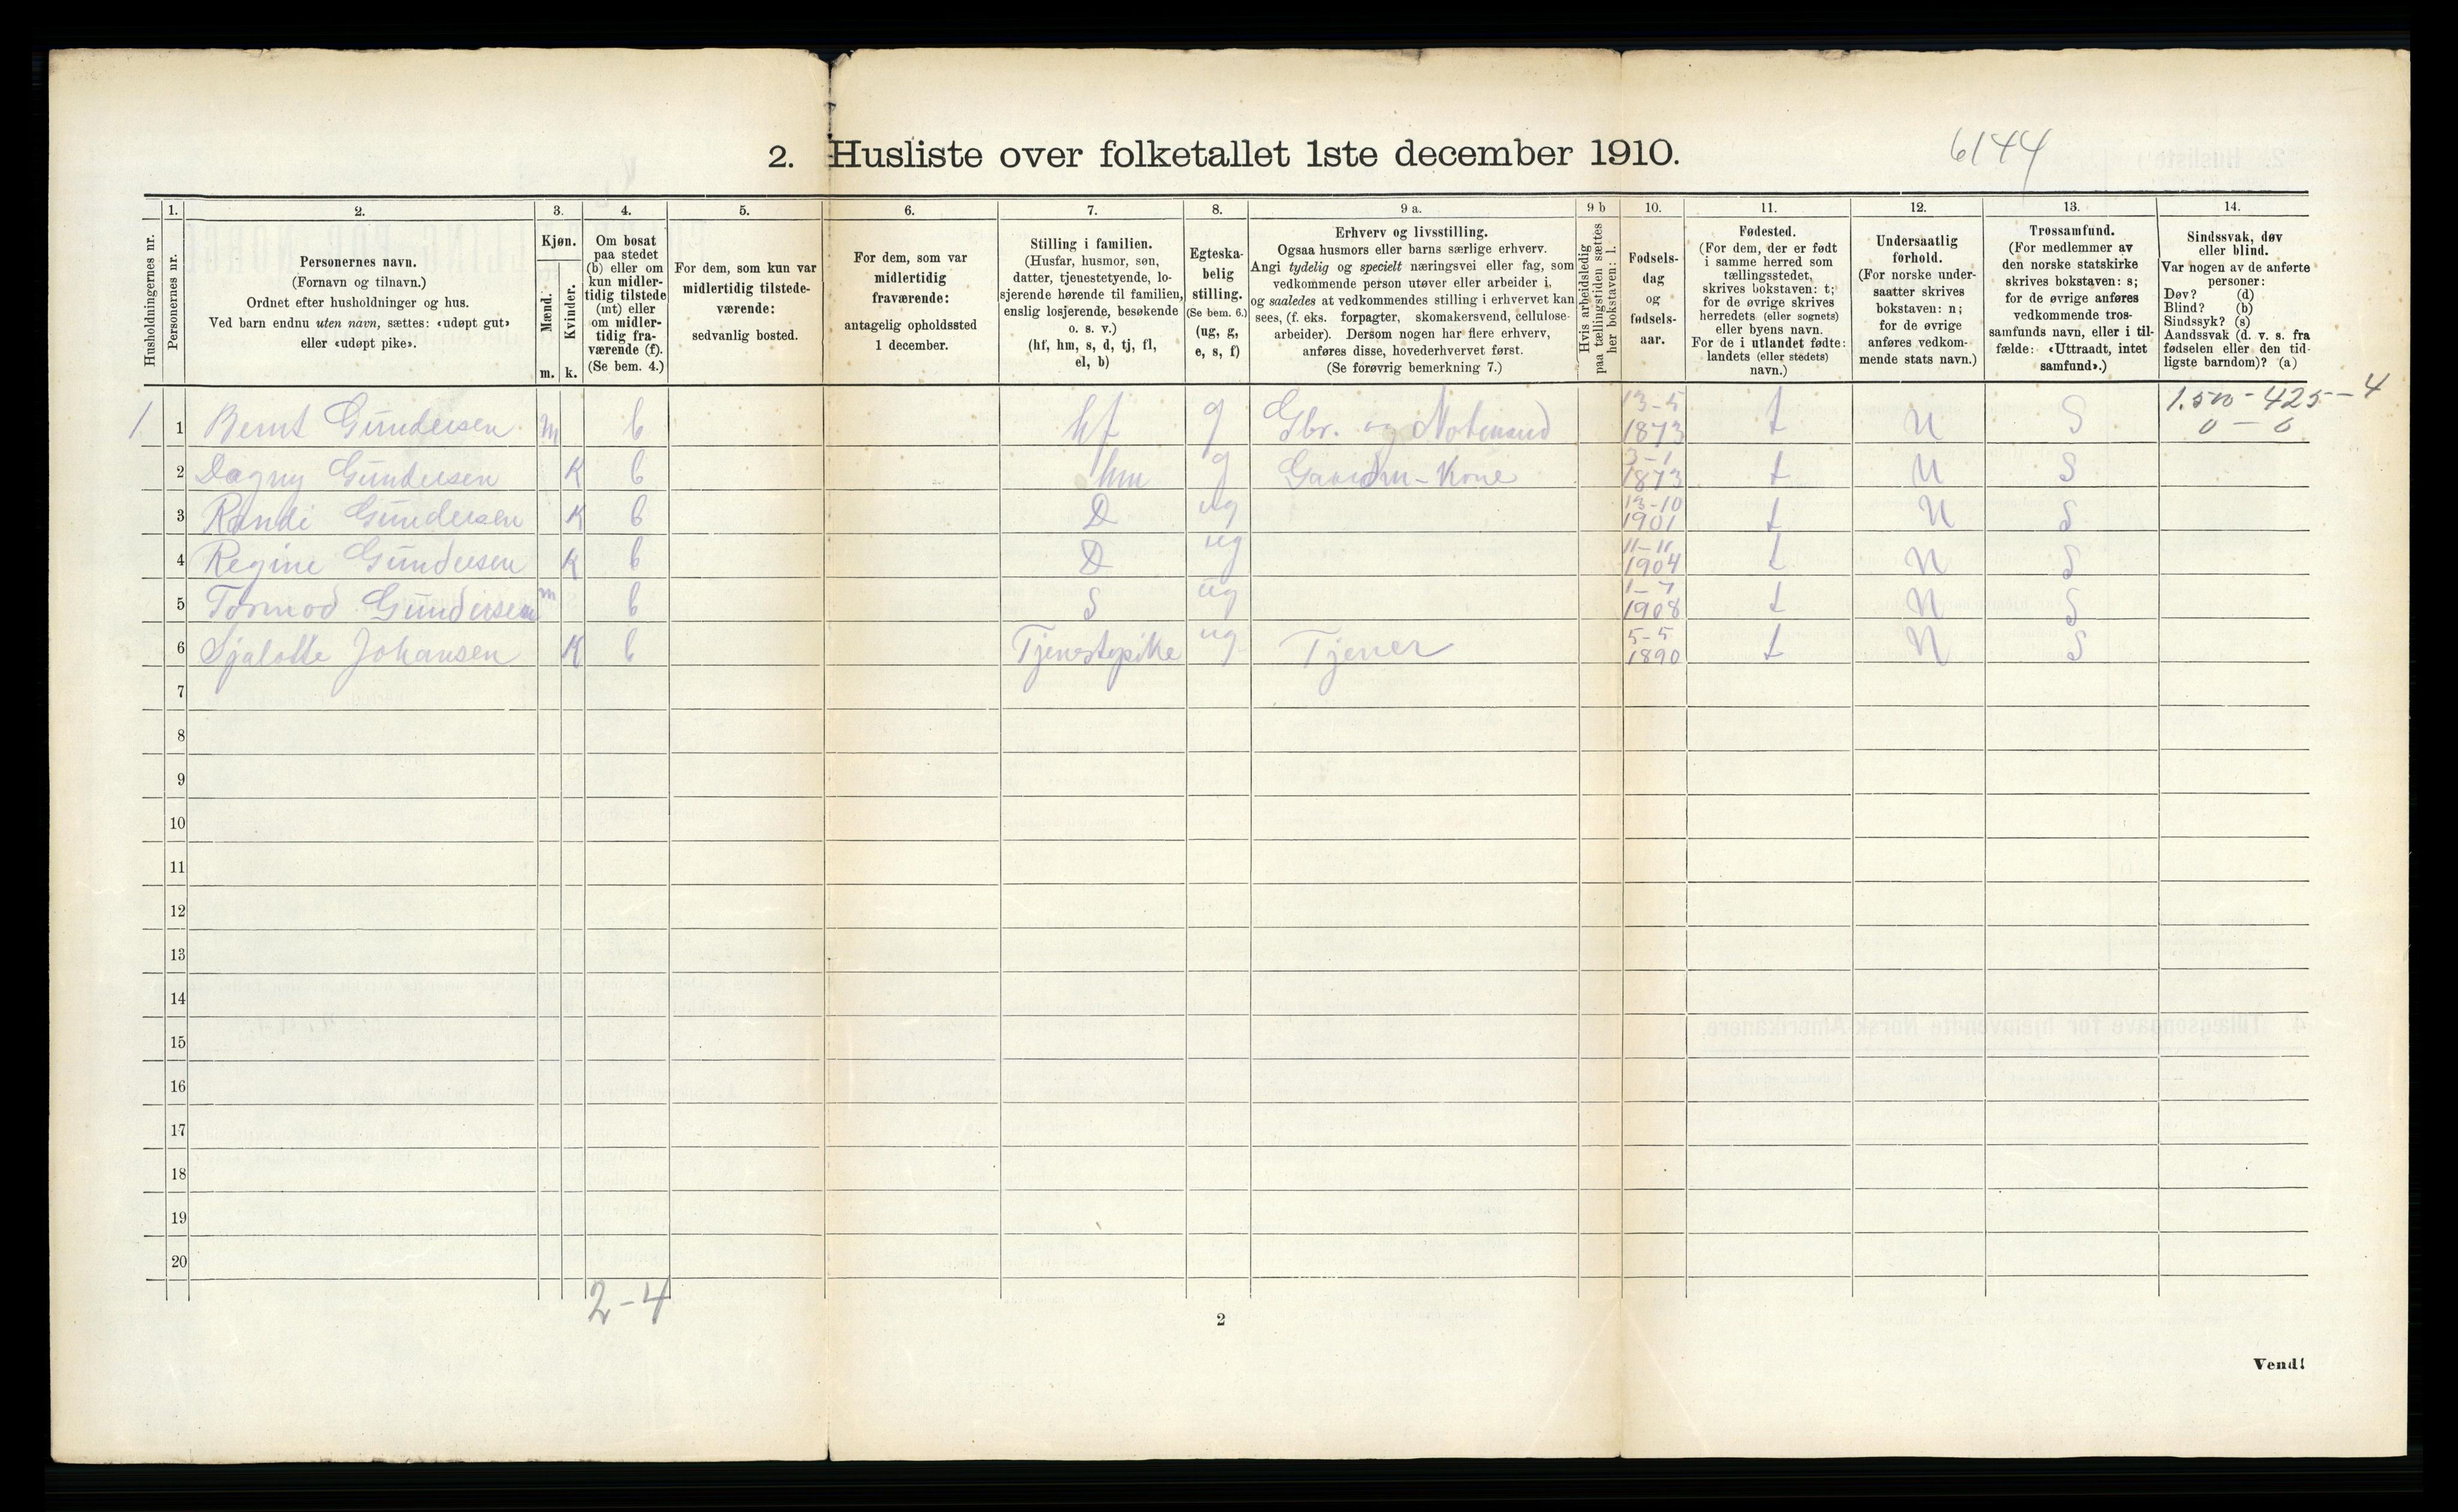 6144
2. Husliste over folketallet 1ste december 1910.
Husholdningernes nr.
1.
Personernes nr.
2.
Personernes navn.
(Fornavn og tilnavn.)
Ordnet efter husholdninger og hus.
Ved barn endnu uten navn, sættes: «udøpt gut»
eller «udøpt pike».
3.
Kjøn.
Mænd.
Kvinder.
m. k.
4.
Om bosat
paa stedet
(b) eller om
kun midler-
tidig tilstede
(mt) eller
om midler-
tidig fra-
værende (f).
(Se bem. 4.)
5.
For dem, som kun var
midlertidig tilstede-
værende:
sedvanlig bosted.
6.
For dem, som var
midlertidig
fraværende:
antagelig opholdssted
1 december.
7.
Stilling i familien.
(Husfar, husmor, søn,
datter, tjenestetyende, lo-
sjerende hørende til familien,
enslig losjerende, besøkende
o. s. v.)
(hf, hm, s, d, tj, fl,
el, b)
8.
Egteska-
belig
stilling.
(Se bem. 6.)
(ug, g,
e, s, f)
9 a.
Erhverv og livsstilling.
Ogsaa husmors eller barns særlige erhverv.
Angi tydelig og specielt næringsvei eller fag, som
vedkommende person utøver eller arbeider i,
og saaledes at vedkommendes stilling i erhvervet kan
sees, (f. eks. forpagter, skomakersvend, cellulose-
arbeider). Dersom nogen har flere erhverv,
anføres disse, hovederhvervet først.
(Se forøvrig bemerkning 7.)
9 b
Hvis arbeidsledig
paa tællingstiden sættes
her bokstaven: l.
10.
Fødsels-
dag
og
fødsels-
aar.
11.
Fødested.
(For dem, der er født
i samme herred som
tællingsstedet,
skrives bokstaven: t;
for de øvrige skrives
herredets (eller sognets)
eller byens navn.
For de i utlandet fødte:
landets (eller stedets)
navn.)
12.
Undersaatlig
forhold.
(For norske under-
saatter skrives
bokstaven: n;
for de øvrige
anføres vedkom-
mende stats navn.)
13.
Trossamfund.
(For medlemmer av
den norske statskirke
skrives bokstaven: s;
for de øvrige anføres
vedkommende tros-
samfunds navn, eller i til-
fælde: «Uttraadt, intet
samfund».)
14.
Sindssvak, døv
eller blind.
Var nogen av de anførte
personer:
Døv? (d)
Blind? (b)
Sindssyk? (s)
Aandssvak (d. v. s. fra
fødselen eller den tid-
ligste barndom)? (a)
1 1 Bernt Gundersen m b hf g Gbr. og 13-5 1873 t N S 1.500-425-4
0 - 0
2 Dagny Gundersen K b hm g Kone 3-1 1873 t N S
3 Randi Gundersen K b D ug 13-10 1901 t N S
4 Regine Gundersen K b D ug 11-11 1904 t N S
5 Tormod Gundersen m b S ug 1-7 1908 t N S
6 Sjalotte Johansen K b Tjenestepike ug Tjener 5-5 1890 t N S
7
8
9
10
11
12
13
14
15
16
17
18
19
20
2-4
2
Vend!